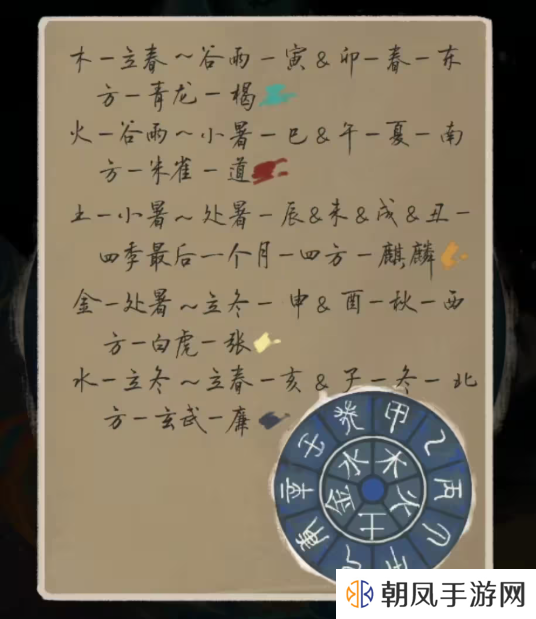 木一立春~谷雨一寅&卯一春一东
方一青龙一楬
火一谷雨~小暑一巳&午一夏一南
方一朱雀一道
土一小暑~处暑一辰&未&戌&丑一
四季最后一个月一四方一麒麟
金一处暑~立冬一申&酉一秋一西
方一白虎一张
水一立冬~立春一亥&子一冬一北
方一玄武一廉
癸 甲 乙 丙
水 木 火 土 金
朝凤手游网